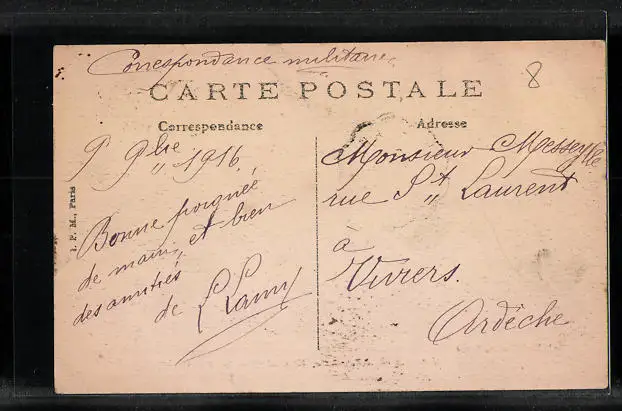 Correspondance militaire
8
CARTE POSTALE
Correspondance
9 9bre 1916.
Bonne poignée
de main, et bien
des amitiés
de L Lamy
Adresse
Monsieur
rue St Laurent
à
Viviers.
Ardèche
I. P. M., Paris